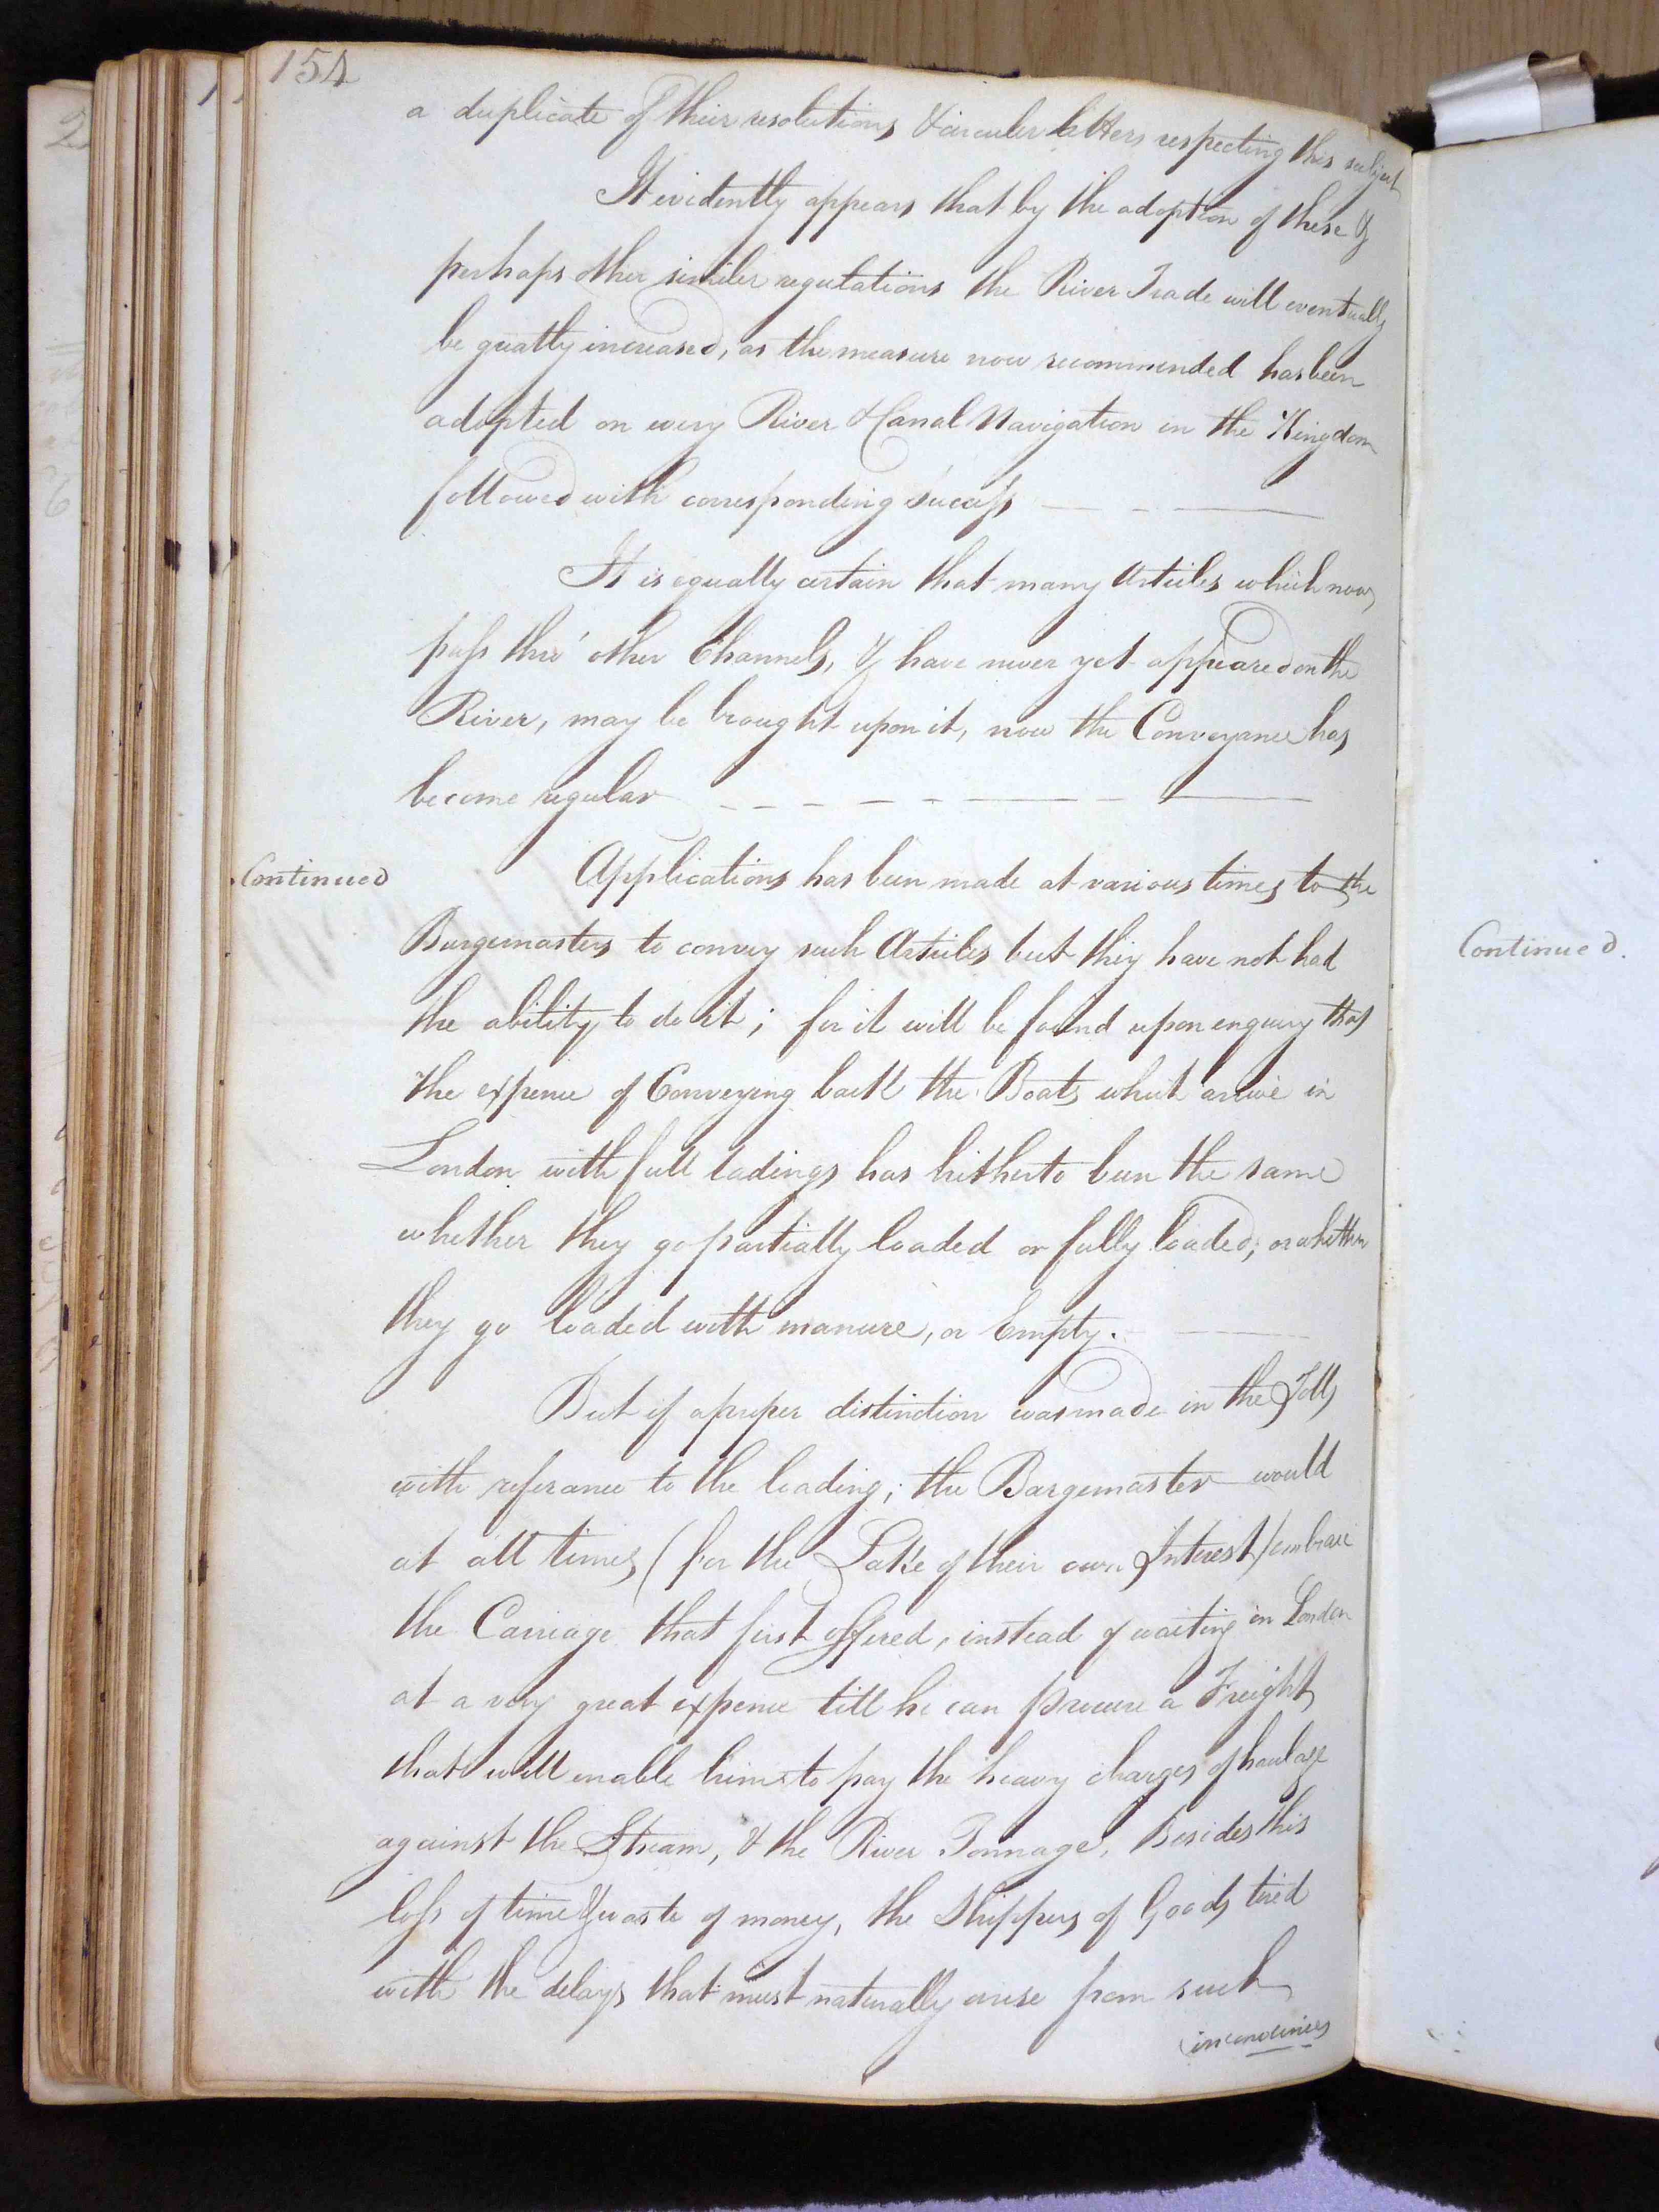 154
a duplicate of their resolutions & circuler letters respecting this subject
It evidently appears that by the adoption of these &
perhaps other similer regulations the River Trade will eventually
be greatly increased, as the measure now recommended has been
adopted on every River & Canal Navigation in the Kingdom
followed with corresponding success
It is equally certain that many Articles which now
pass thro' other Channels, & have never yet appeared on the
River, may be brought upon it, now the Conveyance has
become regular
Continued
Applications has been made at various times to the
Bargemasters to convey such Articles but they have not had
the ability to do it; for it will be found upon enquiry that
the expence of Conveying back the Boats which arrive in
London with full ladings has hitherto been the same
whether they go partially loaded or fully loaded; or whether
they go loaded with manure, or Empty.
But if a proper distinction was made in the Tolls
with referance to the loading; the Bargemaster would
at all times (for the Sake of their own Interest) embrace
the Carriage that first offered, instead of waiting in London
at a very great expence till he can procure a Freight
that will enable him to pay the heavy charges of haulage
against the Stream, & the River Tonnage. Besides this
loss of time & waste of money, the Shippers of Goods tired
with the delays that must naturally arise from such
Continued.